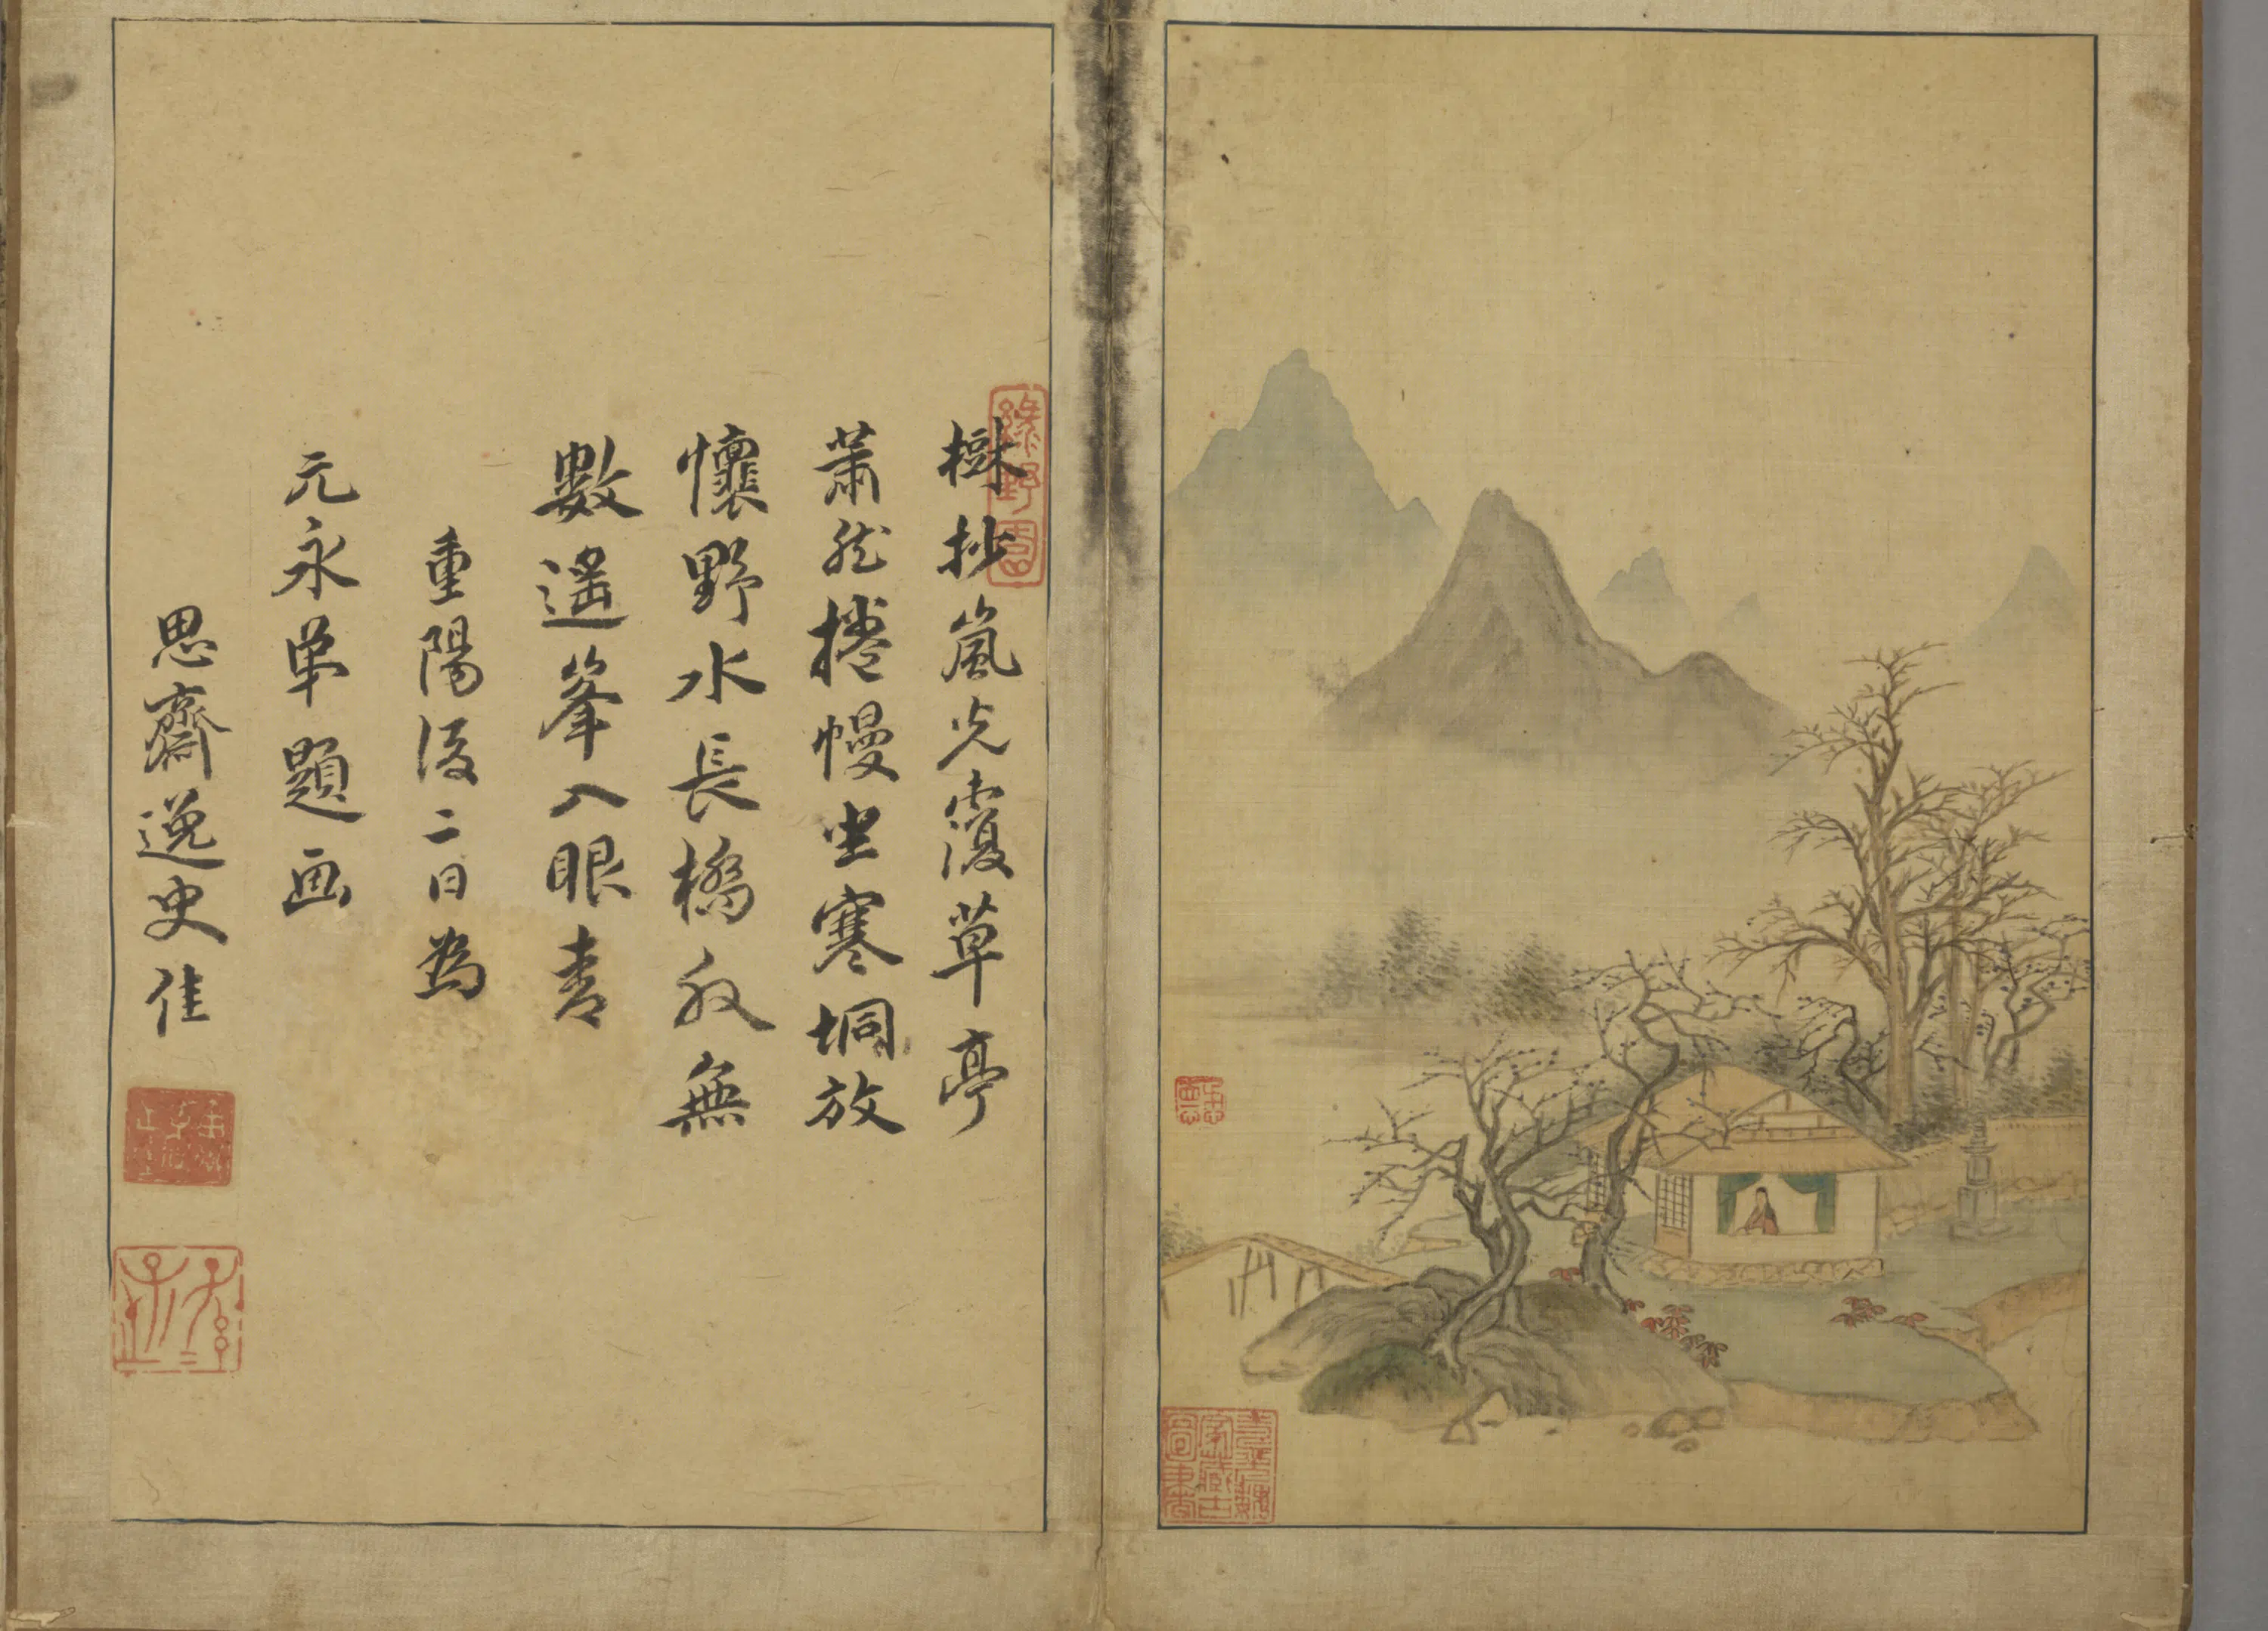 樹抄嵐光覆草亭
蕭然捲幔坐寒坰放
懷野水長橋外無
數遙峯入眼青
重陽後二日為
元永年題画
思齋逸史佳
綠野園